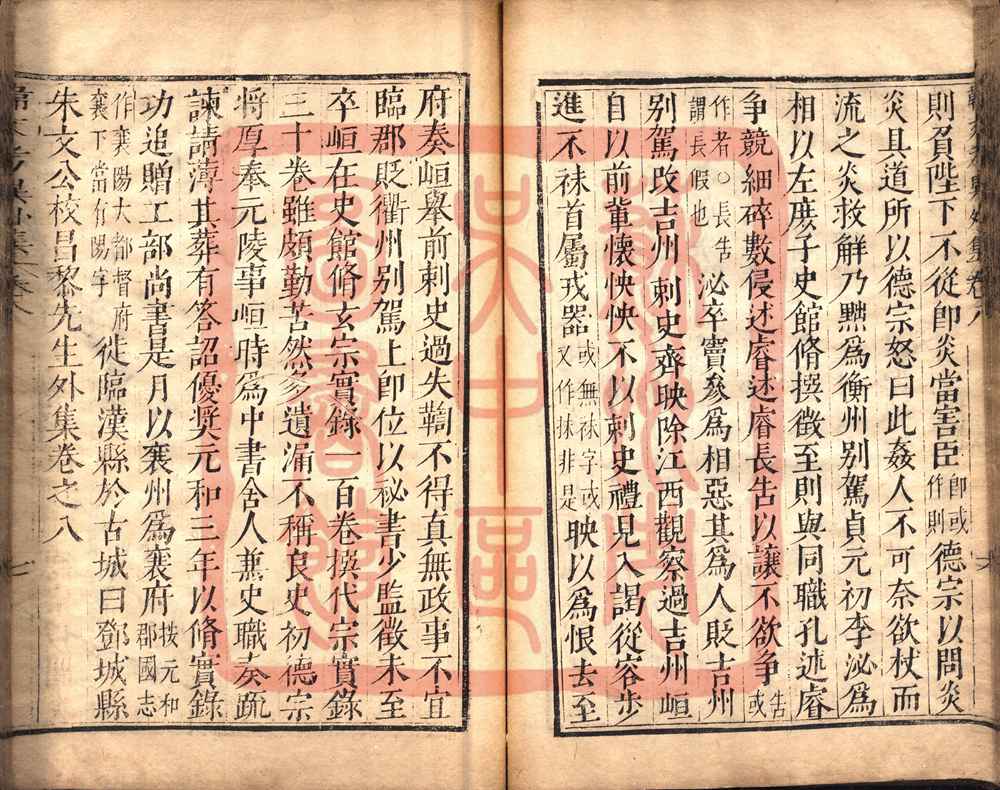 則負陛下不從即炎當害臣即或作則德宗以問炎
炎具道所以德宗怒曰此姦人不可奈欲杖而
流之炎救解乃黜爲衡州别駕貞元初李泌爲
相以左庻子史館脩撰徵至則與同職孔述睿
争競細碎數侵述睿述睿長告以讓不欲争告或
作者○長告謂長假也泌卒竇參爲相惡其爲人貶吉州
别駕改吉州刺史齊映除江西觀察過吉州峘
自以前輩懷怏怏不以刺史禮見入謁從容步
進不袜首屬戎器或無袜字或又作抹非是映以爲恨去至
府奏峘舉前刺史過失鞫不得真無政事不宜
臨郡貶衢州别駕上即位以祕書少監徵未至
卒峘在史館脩玄宗實錄一百卷撰代宗實錄
三十卷雖頗勤苦然多遺漏不稱良史初德宗
將厚奉元陵事峘時爲中書舍人兼史職奏疏
諫請薄其葬有答詔優奨元和三年以脩實錄
功追贈工部尚書是月以襄州爲襄府按元和郡國志
作襄陽大都督府襄下當有陽字徙臨漢縣於古城曰鄧城縣
朱文公校昌黎先生外集卷之八